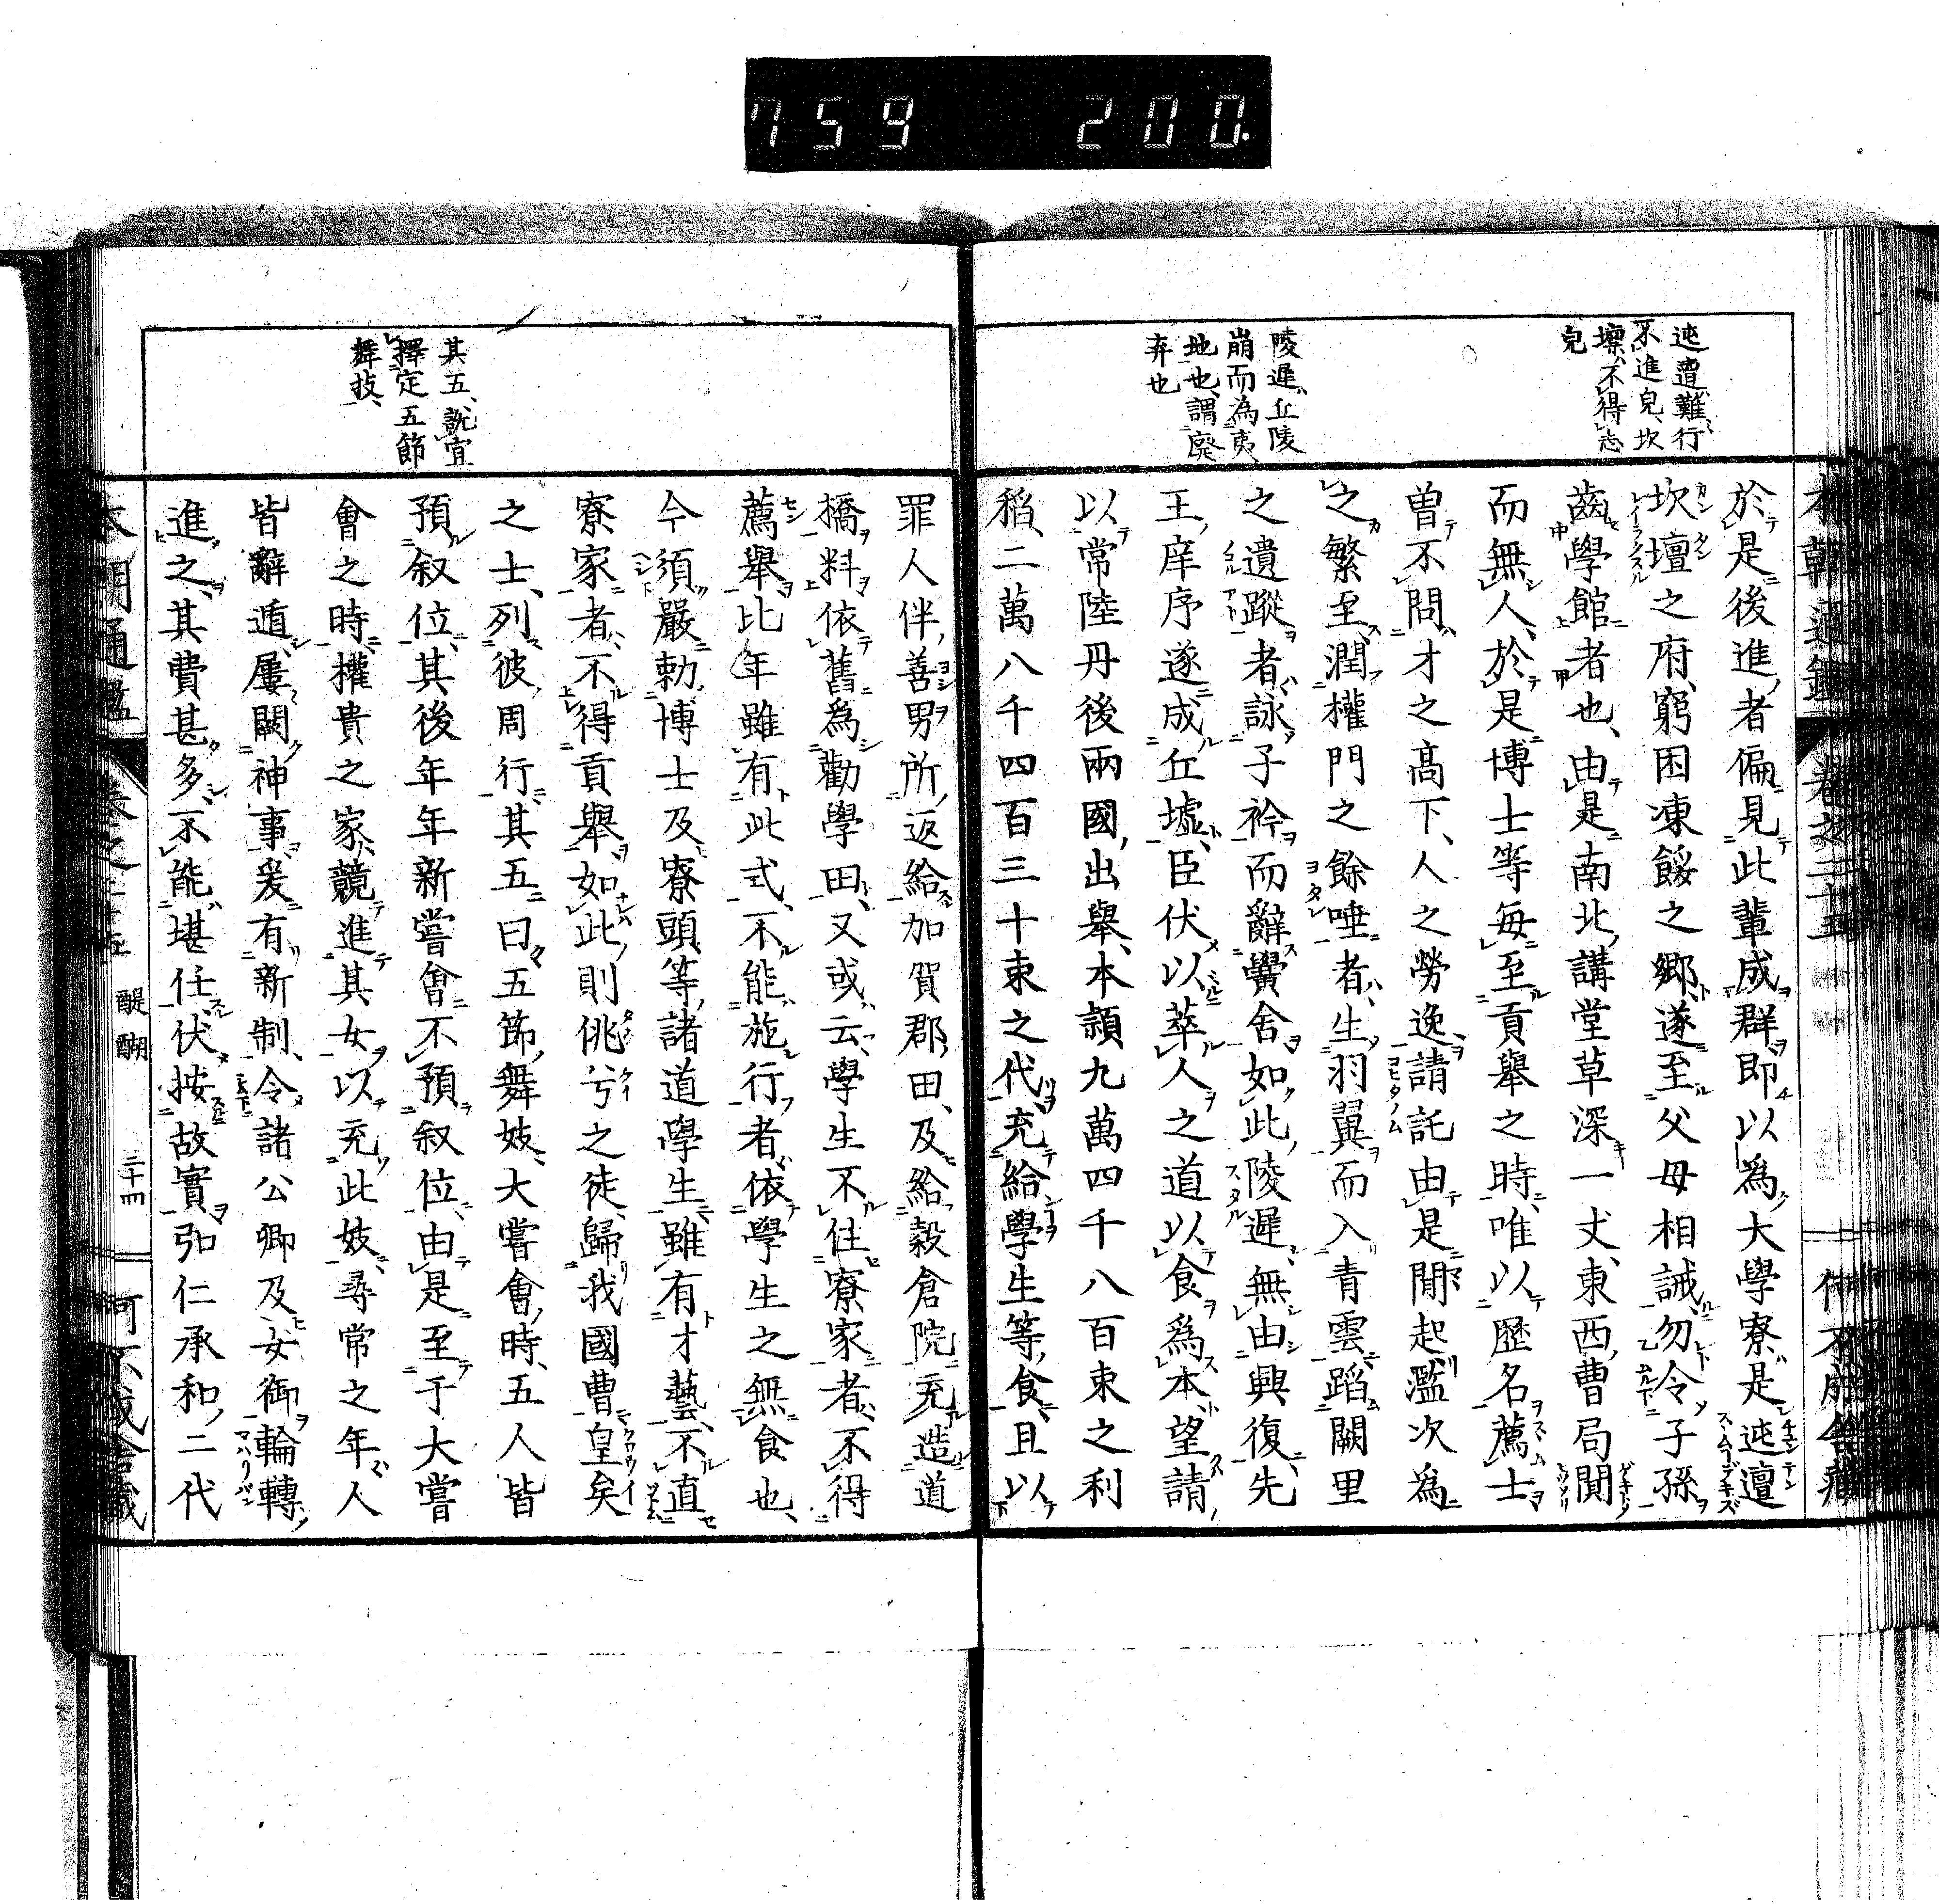 759 200.
迍邅、難行
不進皃、坎
壈、不得志
皃
陵遲、丘陵
崩而為夷
地也、謂廢
弃也
於是後進者偏見此輩成群即以為大學寮是迍邅
坎壇之府、窮困凍餒之鄉、遂至父母相誡、勿令子孫
齒學館者也、由是南北講堂草深一丈、東西曹局閴
而無人、於是博士等每至貢舉之時、唯以歷名薦士
曽不問才之高下、人之勞逸、請託由是閒起、濫次為
之繁至、潤權門之餘唾者、生羽翼而入青雲、蹈闕里
之遺蹤者、詠子衿而辭黌舍、如此陵遲、無由興復、先
王庠序遂成丘墟、臣伏以萃人之道以食為本、望請
以常陸丹後兩國出舉、本頴九萬四千八百束之利
稻、二萬八千四百三十束之代、充給學生等食、且以
罪人伴善男所返給加賀郡田、及給穀倉院充造道
橋料、依舊為勸學田、又或云、學生不住寮家者、不得
薦舉、比年雖有此式、不能施行者、依學生之無食也、
今須嚴勅博士及寮頭等、諸道學生雖有才藝、不直
寮家者、不得貢舉、如此則佻兮之徒、歸我國曹皇矣
之士、列彼周行、其五曰、五節舞妓、大嘗會時、五人皆
預叙位、其後年年新嘗會不預叙位、由是至于大嘗
會之時、權貴之家競進其女以充此妓、尋常之年人
皆辭遁、屢闕神事、爰有新制、令諸公卿及女御輪轉
進之、其費甚多、不能堪任、伏按故實、弘仁承和二代
其五、說宜
擇定五節
舞技、
本朝通鑑 卷之二十五 醍醐 三十四